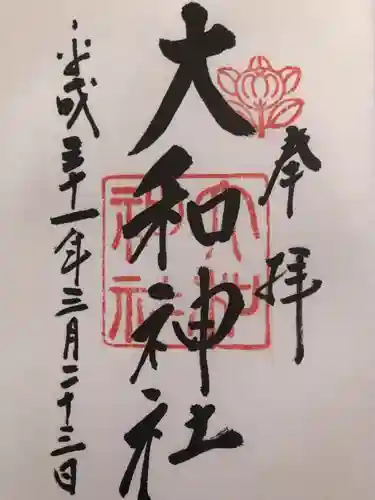 奉拝
大和神社
大和神社
平成三十一年三月二十三日